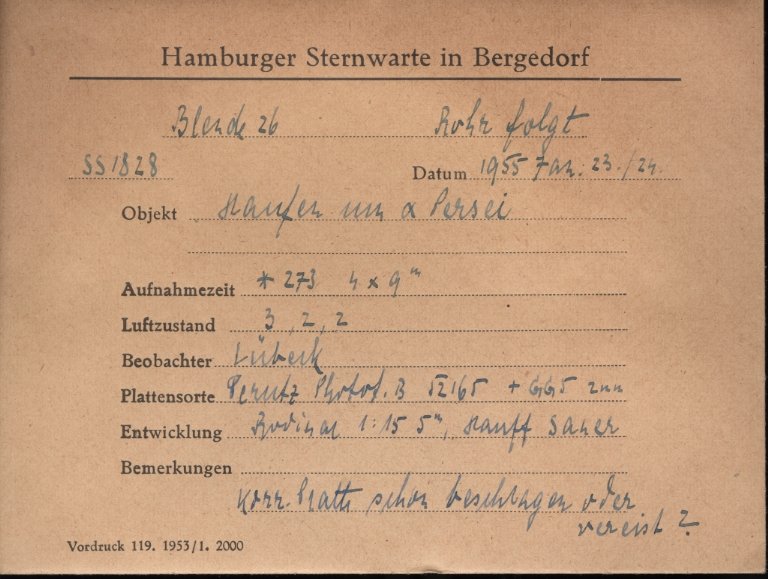 Hamburger Sternwarte in Bergedorf
Blende 26 Rohr folgt
SS 1828 Datum 1955 Jan. 23./24.
Objekt Haufen um α Persei
Aufnahmezeit * 273 4 x 9ᵐ
Luftzustand 3, 2, 2
Beobachter Lübeck
Plattensorte Perutz Phot. B 52165 + GG5 2mm
Entwicklung Rodinal 1:15 5ᵐ, Hauff Sauer
Bemerkungen
Korr. Platte schon beschlagen oder
vereist?
Vordruck 119. 1953/1. 2000